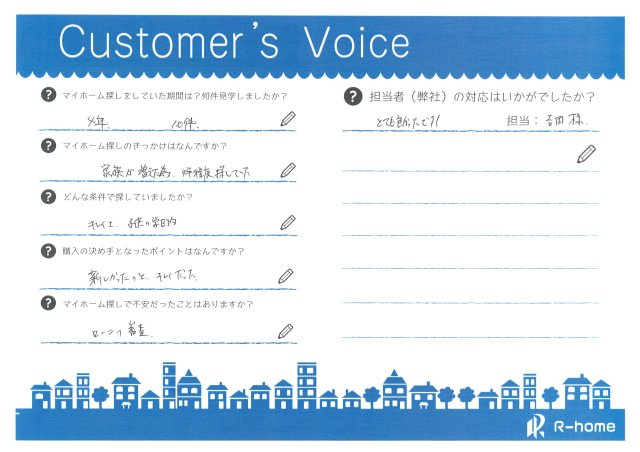 Customer's Voice
? マイホーム探しをしていた期間は？何件見学しましたか？
4年 10件
? マイホーム探しのきっかけはなんですか？
家族が増えた為、4年程度探していた
? どんな条件で探していましたか？
キレイで、子供の学区内
? 購入の決め手となったポイントはなんですか？
新しかったのと、キレイだった
? マイホーム探しで不安だったことはありますか？
ローン審査
? 担当者（弊社）の対応はいかがでしたか？
とても良かったです! 担当：吉田 様
R-home